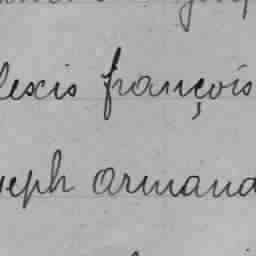 lexis françois
seph armand